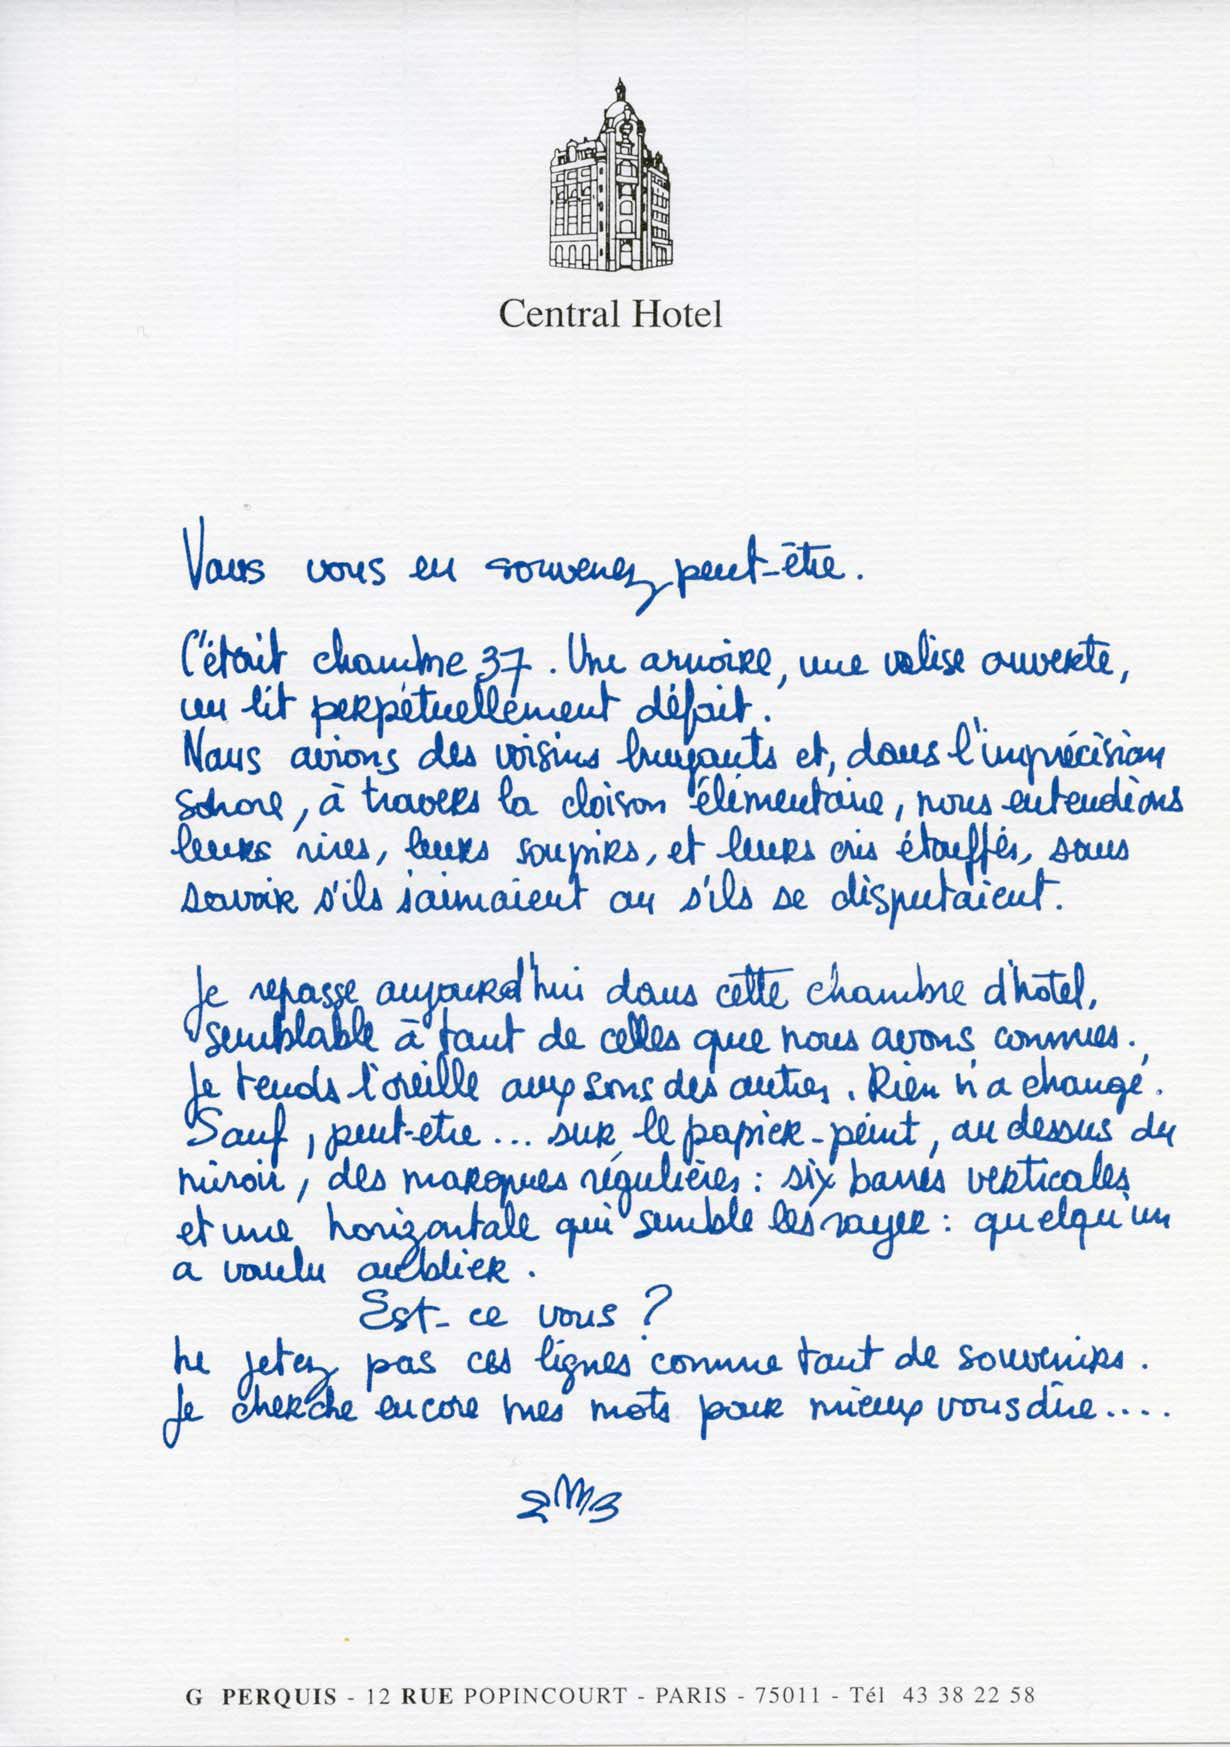 Central Hotel
Vous vous en souvenez peut-être.
C'était chambre 37. Une armoire, une valise ouverte,
un lit perpétuellement défait.
Nous avions des voisins bruyants et, dans l'imprécision
sonore, à travers la cloison élémentaire, nous entendions
leurs rires, leurs soupirs, et leurs cris étouffés, sans
savoir s'ils s'aimaient ou s'ils se disputaient.
Je repasse aujourd'hui dans cette chambre d'hôtel,
semblable à tant de celles que nous avons connues.
Je tends l'oreille aux sons des autres. Rien n'a changé.
Sauf, peut-etre... sur le papier-peint, au dessus du
miroir, des marques régulières : six barres verticales
et une horizontale qui semble les rayer : quelqu'un
a voulu oublier.
Est-ce vous ?
Ne jetez pas ces lignes comme tant de souvenirs.
Je cherche encore mes mots pour mieux vous dire....
G PERQUIS - 12 RUE POPINCOURT - PARIS - 75011 - Tél 43 38 22 58